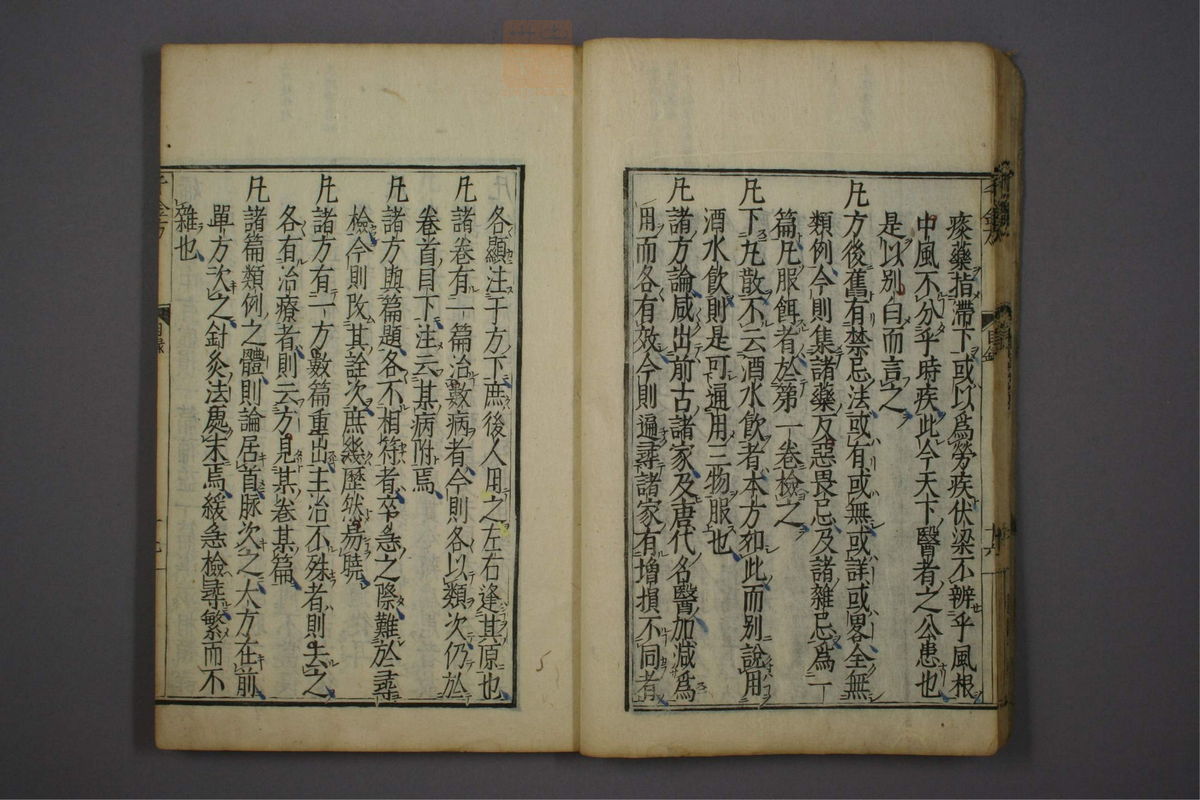 痰藥指滯下或以爲勞疾伏梁不辨乎風根
中風不分乎時疾此今天下醫者之公患也
是以别白而言之
凡方後舊有禁忌法或有或無或詳或畧全無
類例今則集諸藥反惡畏忌及諸雜忌爲一
篇凡服餌者於第一卷檢之
凡下丸散不云酒水飮者本方如此而别說用
酒水飮則是可通用三物服也
凡諸方論咸出前古諸家及唐代名醫加減爲
用而各有效今則遍尋諸家有增損不同者
各顯注于方下庶後人用之左右逢其原也
凡諸卷有一篇治數病者今則各以類次仍於
卷首目下注云某病附焉
凡諸方與篇題各不相符者卒急之際難於尋
檢今則改其詮次庶幾歷然易曉
凡諸方有一方數篇重出主治不殊者則去之
各有治療者則云方見某卷某篇
凡諸篇類例之體則論居首脉次之大方在前
單方次之針灸法處末焉緩急檢尋繁而不
雜也
千金方
目錄